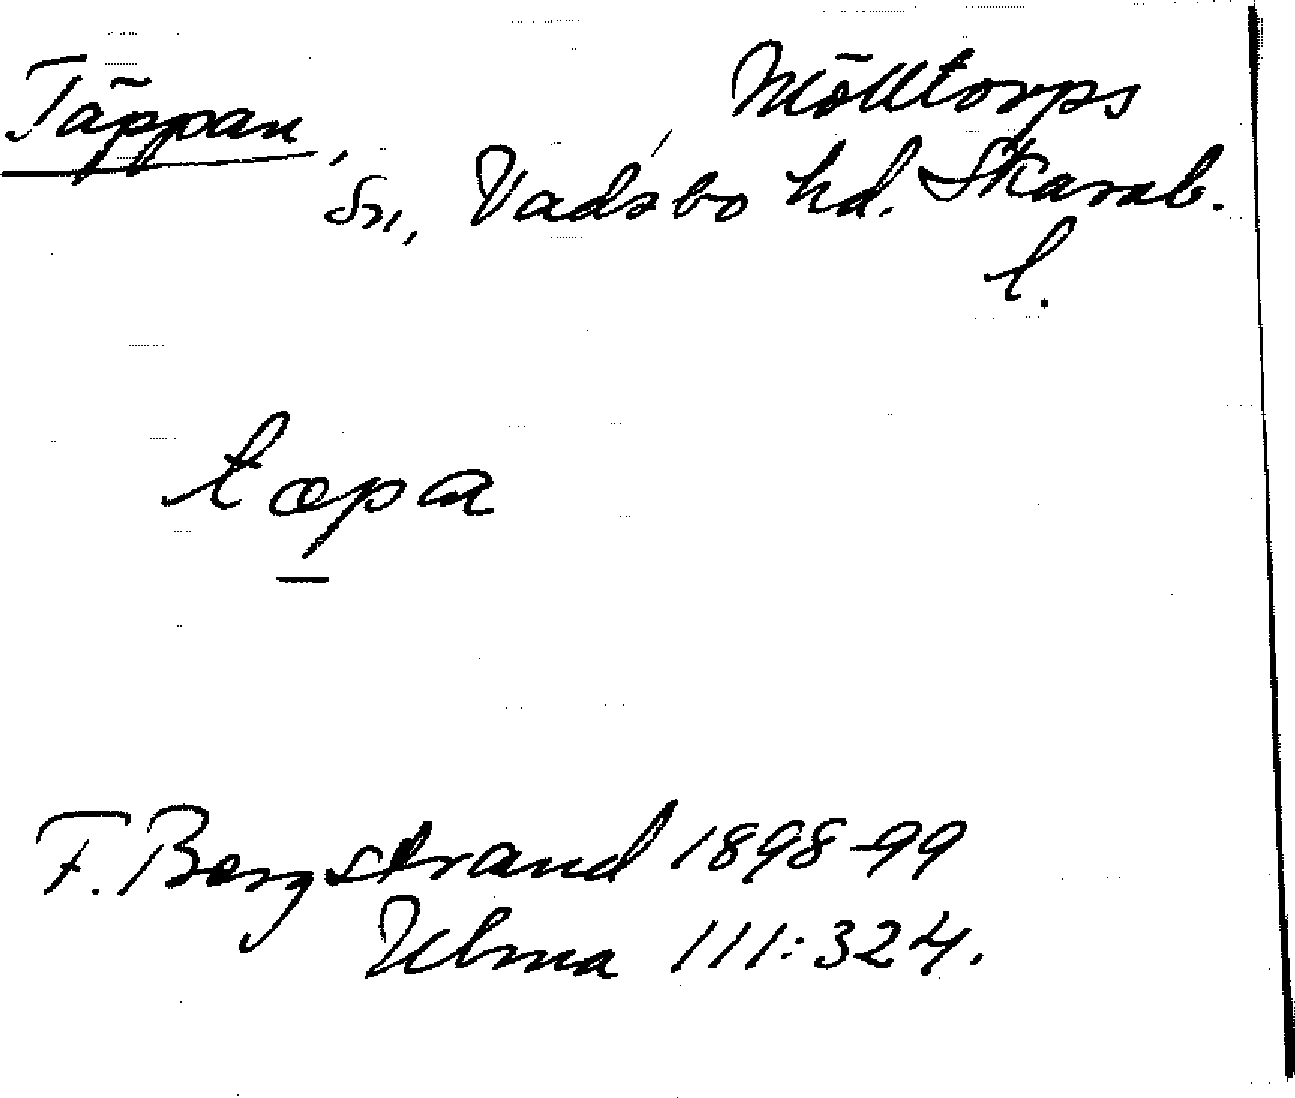 Mölltorps
Täppan,
Sn, Vadsbo hd. Skarab.
l.
tæpa
F. Bergstrand 1898-99
Ulma 111:324.